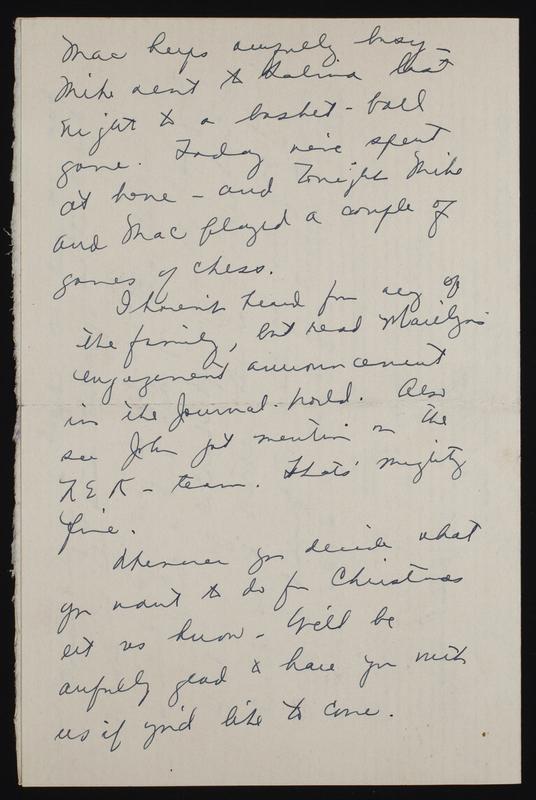 Mac keeps awfully busy -
Mike went to Salina last
night to a basket-ball
game. Today we've spent
at home - and tonight Mike
and Mac played a couple of
games of chess.
I haven't heard from any of
the family, but read Marilyn's
engagement announcement
in the Journal-World. Also
see John got mention on the
N E K - team. Thats' mighty
fine.
Whenever you decide what
you want to do for Christmas
let us know - We'll be
awfully glad to have you with
us if you'd like to come.